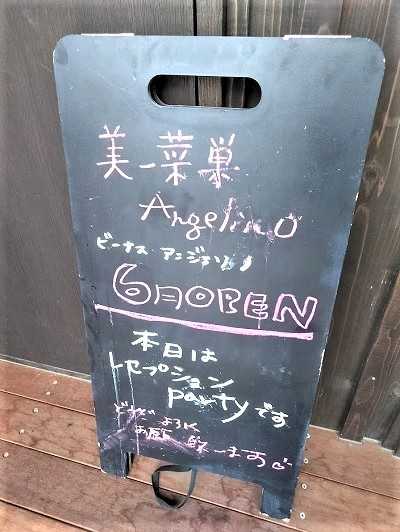 美一菜巣
Angelino
ビーナス・アンジェリノ
6月OPEN
本日は
レセプション
partyです
どうぞ よろしく
お願い 致します